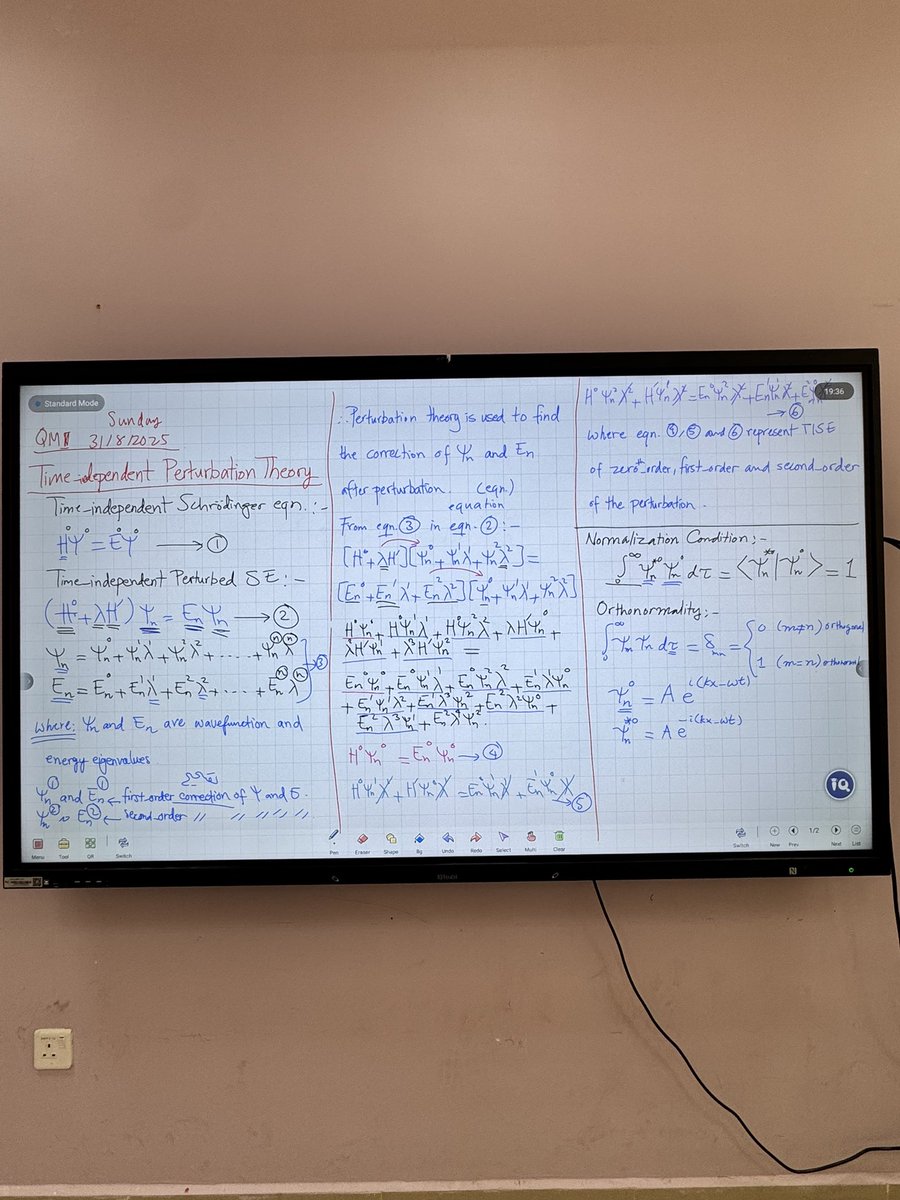 Standard Mode
Sunday
QMII 31/8/2025
Time-independent Perturbation Theory
Time-independent Schrödinger eqn.:-
H°Ψ° = E°Ψ° → ①
Time-independent Perturbed SE:-
(H° + λH′) Ψn = En Ψn → ②
Ψn = Ψn° + Ψn¹λ + Ψn²λ² + ...... + Ψnⁿλⁿ
En = En° + En¹λ + En²λ² + ..... + Enⁿλⁿ ③
where: Ψn and En are wavefunction and
energy eigenvalues
Ψn① and En① ← first-order correction of Ψ and E.
Ψn② En② ← second-order // // // // //
∴ Perturbation theory is used to find
the correction of Ψn and En
after perturbation. (eqn.)
equation
From eqn. ③ in eqn. ②:-
[H° + λH′][Ψn° + Ψn¹λ + Ψn²λ²] =
[En° + En¹λ + En²λ²][Ψn° + Ψn¹λ + Ψn²λ²]
H°Ψn° + H°Ψn¹λ + H°Ψn²λ² + λH′Ψn° +
λ²H′Ψn¹ + λ³H′Ψn² =
En°Ψn° + En°Ψn¹λ + En°Ψn²λ² + En¹λΨn°
+ En¹Ψn¹λ² + En¹λ³Ψn² + En²λ²Ψn° +
En²λ³Ψn¹ + En²λ⁴Ψn².
H°Ψn° = En°Ψn° → ④
H°Ψn¹λ + H′Ψn°λ = En°Ψn¹λ + En¹Ψn°λ
→ ⑤
H°Ψn²λ² + H′Ψn¹λ² = En°Ψn²λ² + En¹Ψn¹λ² + En²Ψn°
19:36
→ ⑥
where eqn. ④, ⑤ and ⑥ represent TISE
of zeroth-order, first-order and second-order
of the perturbation.
Normalization Condition:-
∫₀^∞ Ψn*° Ψn° dτ = ⟨Ψn*°|Ψn°⟩ = 1
Orthonormality:-
∫₀^∞ Ψm Ψn dτ = δmn = { 0 (m≠n) orthogonal
1 (m=n) orthonormal
Ψn° = A e^i(kx-ωt)
Ψn*° = A e^-i(kx-ωt)
IQ
Menu Tool QR Switch Pen Eraser Shape Bg Undo Redo Select Multi Clear Switch New Prev 1/2 Next List
IQTouch